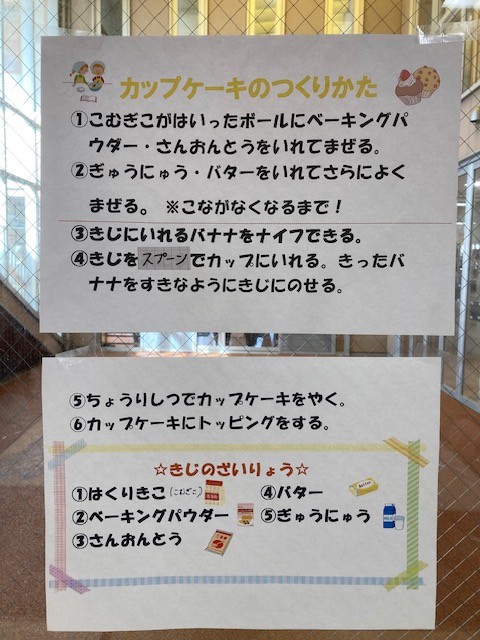 カップケーキのつくりかた
①こむぎこがはいったボールにベーキングパ
ウダー・さんおんとうをいれてまぜる。
②ぎゅうにゅう・バターをいれてさらによく
まぜる。 ※こながなくなるまで！
③きじにいれるバナナをナイフできる。
④きじをスプーンでカップにいれる。きったバ
ナナをすきなようにきじにのせる。
⑤ちょうりしつでカップケーキをやく。
⑥カップケーキにトッピングをする。
☆きじのざいりょう☆
①はくりきこ(こむぎこ) ④バター
②ベーキングパウダー ⑤ぎゅうにゅう
③さんおんとう